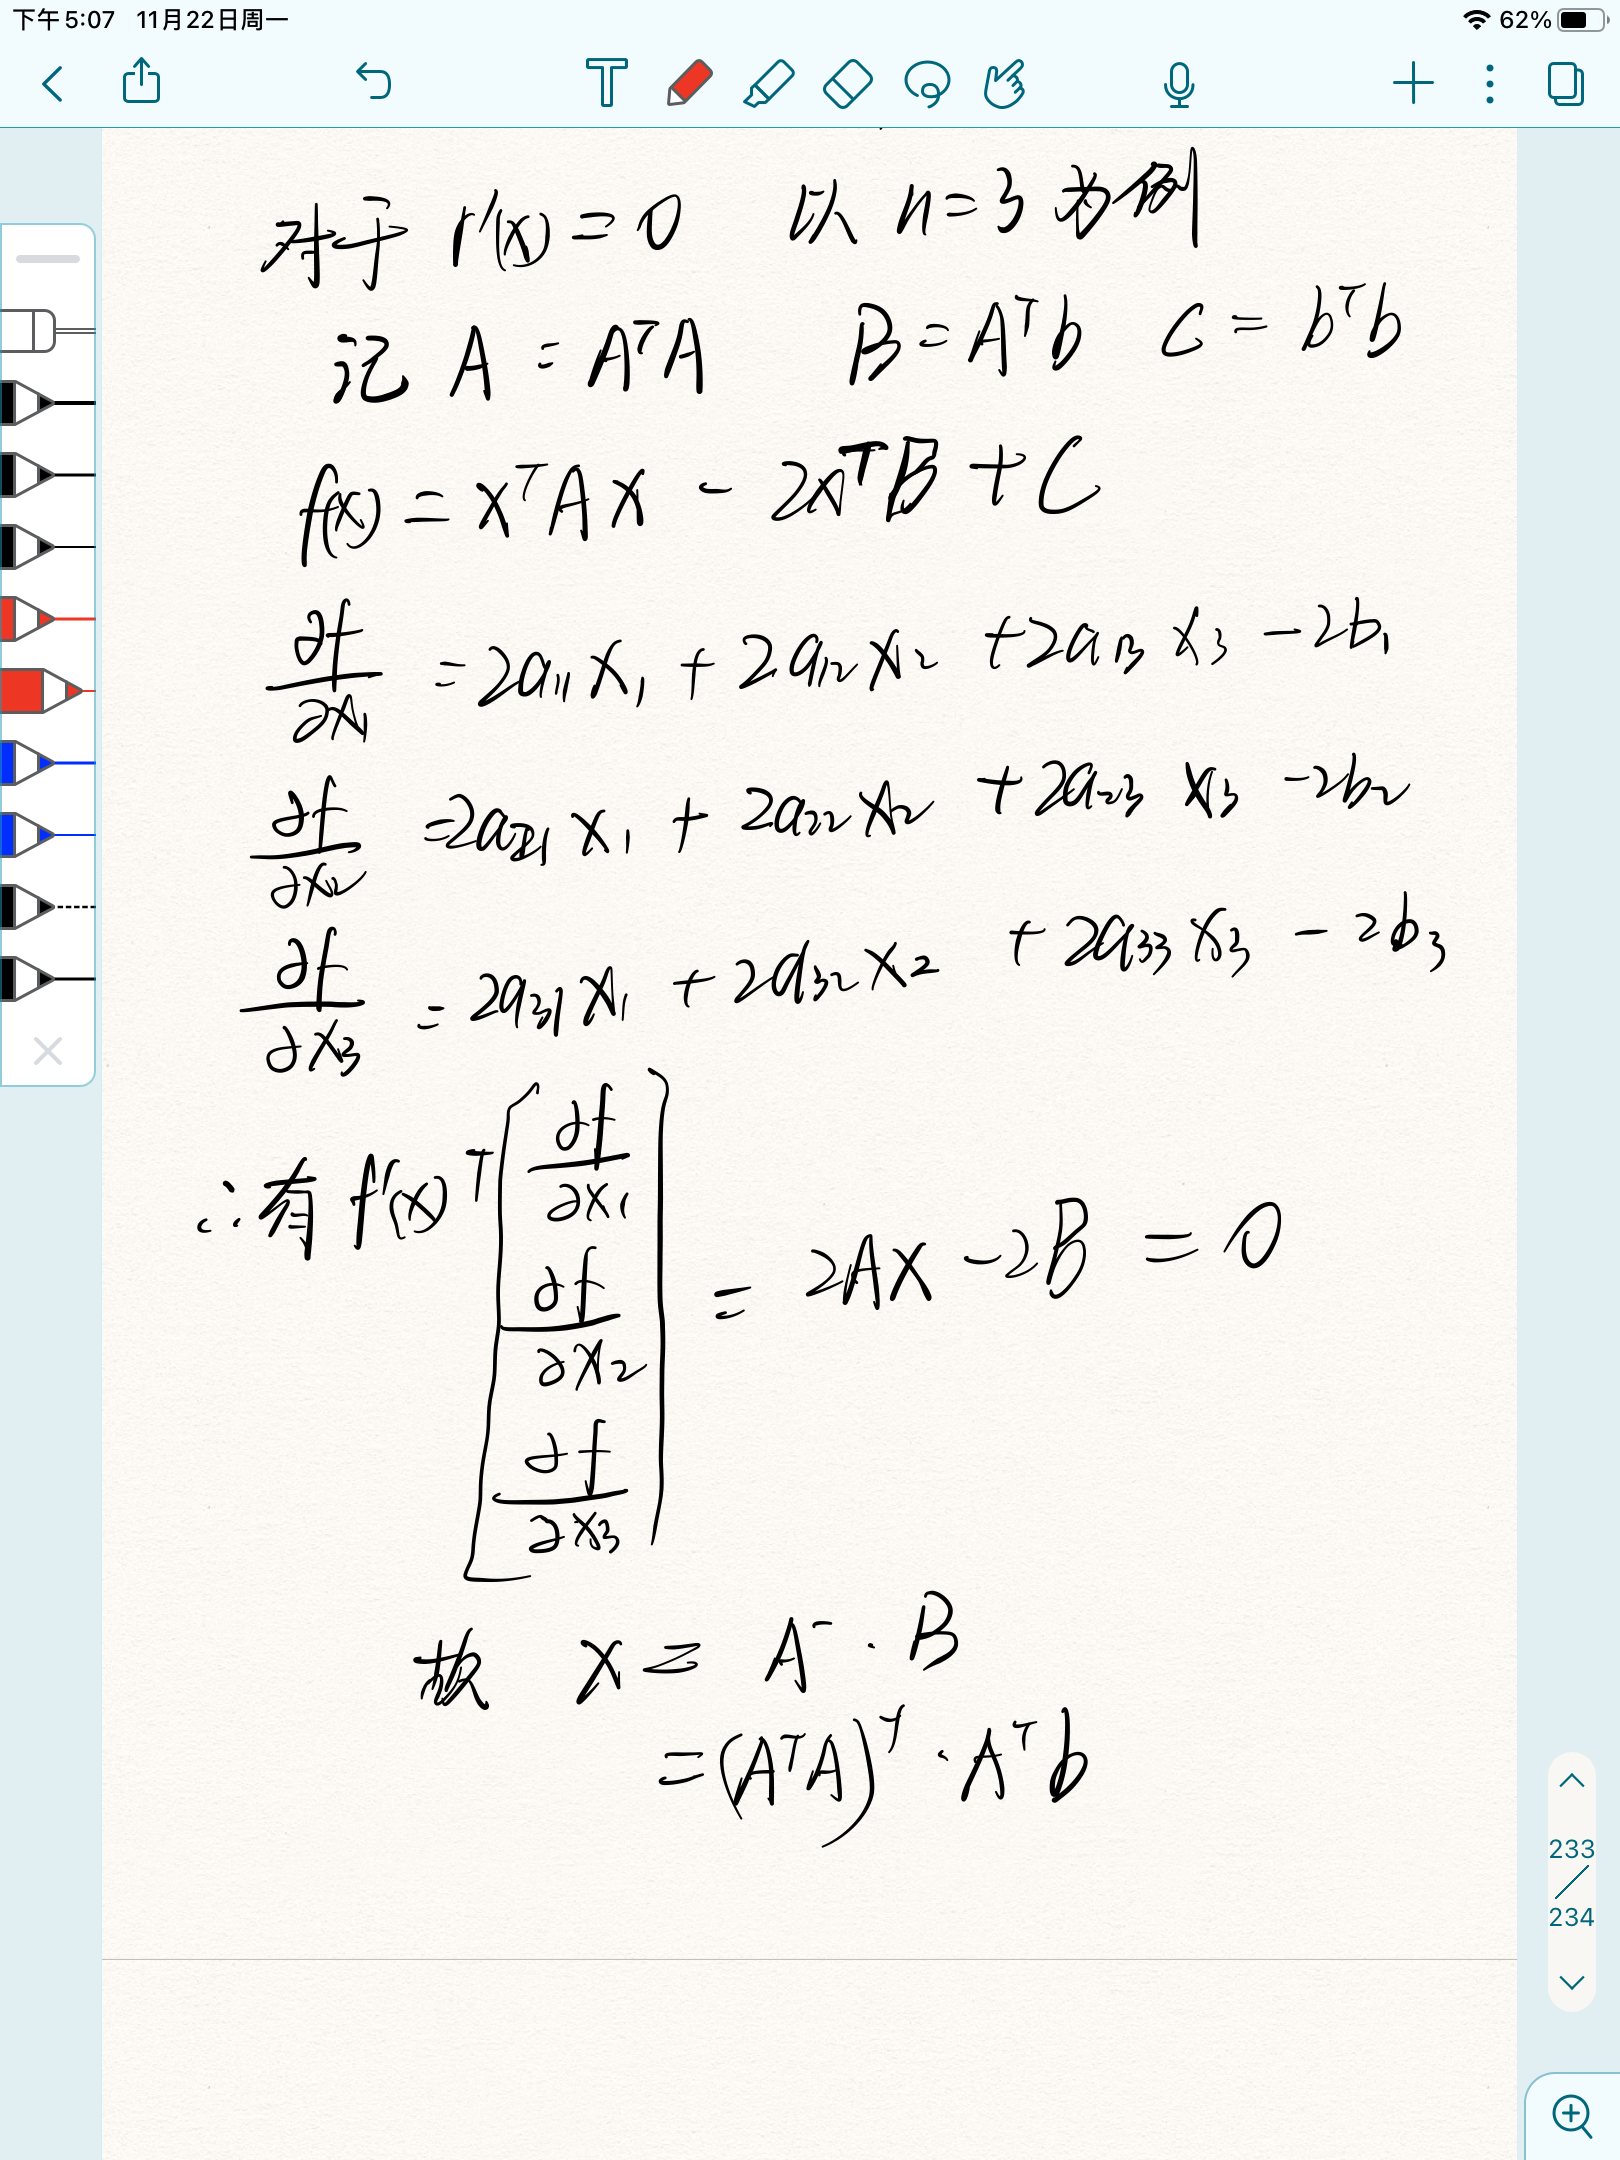 下午5:07 11月22日周一 62%
T
对于 f'(x) = 0 以 n=3 为例
记 A = AᵀA B = Aᵀb C = bᵀb
f(x) = xᵀAx - 2xᵀB + C
∂f/∂x₁ = 2a₁₁x₁ + 2a₁₂x₂ + 2a₁₃x₃ - 2b₁
∂f/∂x₂ = 2a₂₁x₁ + 2a₂₂x₂ + 2a₂₃x₃ - 2b₂
∂f/∂x₃ = 2a₃₁x₁ + 2a₃₂x₂ + 2a₃₃x₃ - 2b₃
∴有 f'(x)ᵀ [∂f/∂x₁ ∂f/∂x₂ ∂f/∂x₃] = 2Ax - 2B = 0
故 x = A⁻ · B
= (AᵀA)⁻¹ · Aᵀb
233/234